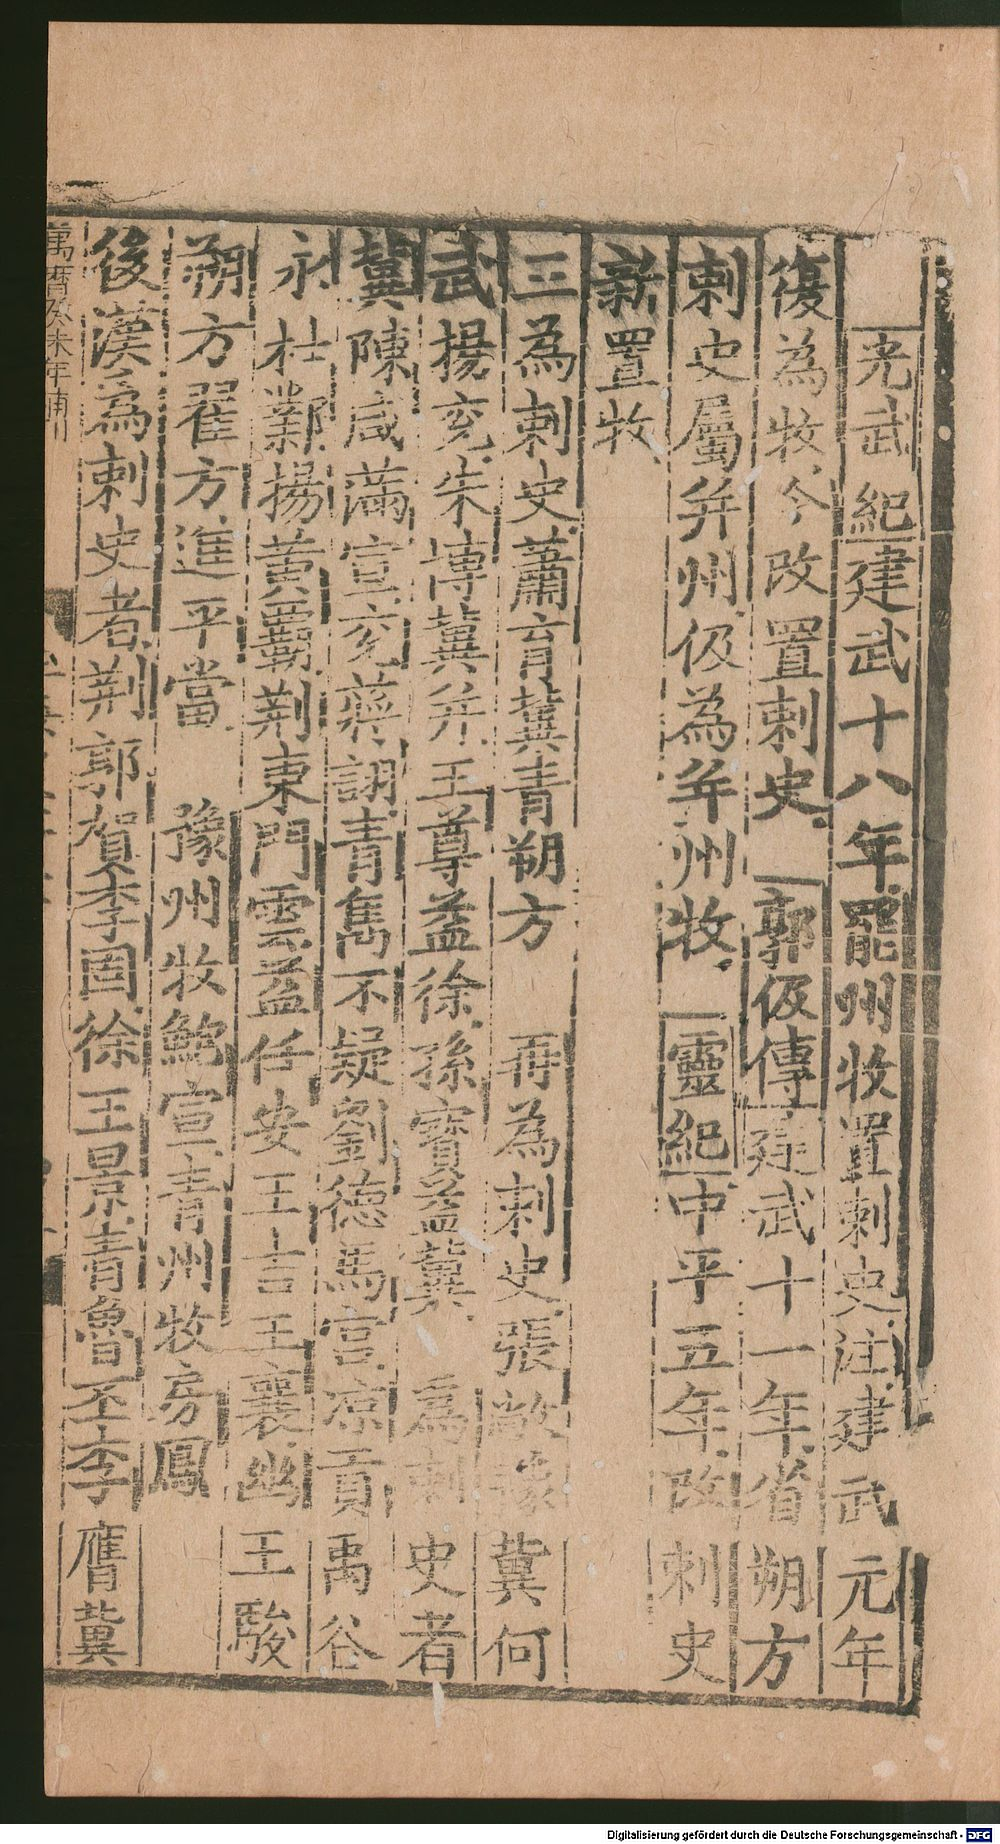 光武紀建武十八年罷州牧置刺史注建武元年
復為牧今改置刺史 郭伋傳建武十一年省朔方
刺史屬并州伋為并州牧 靈紀中平五年改刺史
新置牧
三為刺史蕭育冀青朔方 再為刺史張敞豫冀何
武楊兗朱博冀并王尊益徐孫寶益冀 為刺史者
冀陳咸滿宣兗蔣詡青雋不疑劉德馬宮涼貢禹谷
永杜鄴揚黃霸荊東門雲益任安王吉王襄幽王駿
朔方翟方進平當 豫州牧鮑宣青州牧房鳳
後漢為刺史者荊郭賀李固徐王景青魯丕李膺冀
萬曆癸未年補刊
Digitalisierung gefördert durch die Deutsche Forschungsgemeinschaft - DFG